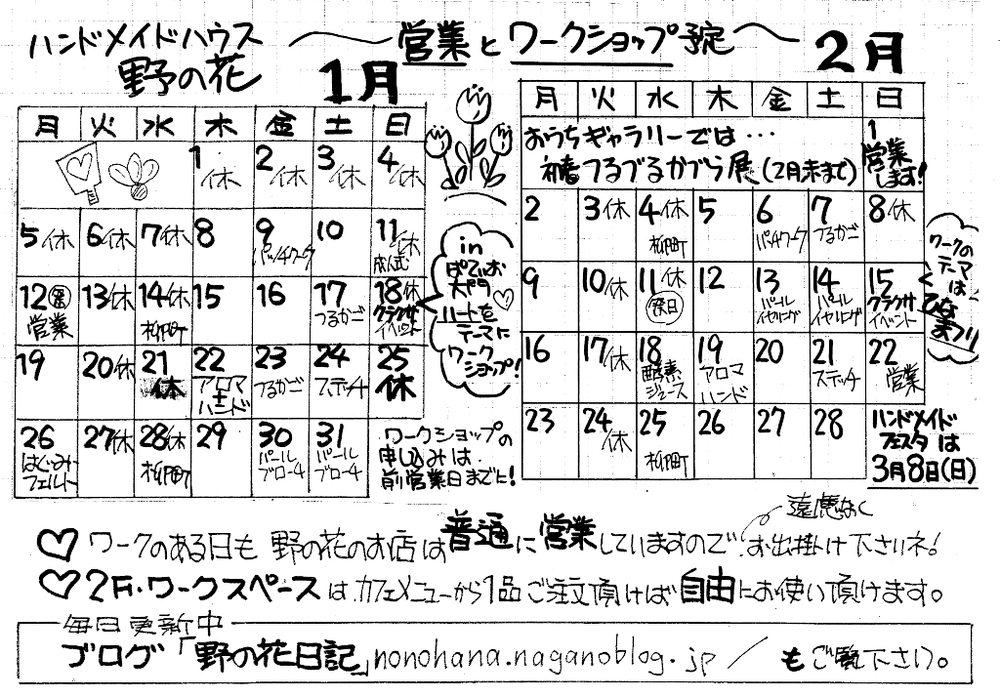 ハンドメイドハウス
野の花
営業とワークショップ予定
1月
月 火 水 木 金 土 日
1休 2休 3休 4休
5休 6休 7休 8 9パッチワーク 10 11休成人式
12㊗営業 13休 14休柳町 15 16 17つるかご 18休クラクサイベント
19 20休 21休 22アロマ+ハンド 23つるかご 24ステッチ 25休
26はぐみフェルト 27休 28休柳町 29 30パールブローチ 31パールブローチ
ワークショップの
申し込みは、
前営業日までに!
in
ぱてぃお
大門
ハートを
テーマに
ワーク
ショップ!
2月
月 火 水 木 金 土 日
おうちギャラリーでは…
初春つるぶるかぶら展(2月末まで)
1営業します!
2 3休 4休柳町 5 6パッチワーク 7つるかご 8休
9 10休 11休祭日 12 13パールイヤリング 14パールイヤリング 15クラクサイベント
16 17休 18酵素ジュース 19アロマハンド 20 21ステッチ 22営業
23 24休 25休柳町 26 27 28
ハンドメイド
フェスタは
3月8日(日)
ワークの
テーマ
は
ひな
まつり
♡ワークのある日も 野の花のお店は普通に営業していますので、遠慮なくお出掛け下さいネ!
♡2F・ワークスペースはカフェメニューから1品ご注文頂けば自由にお使い頂けます。
毎日更新中
ブログ「野の花日記」nonohana.naganoblog.jp/ もご覧下さい。